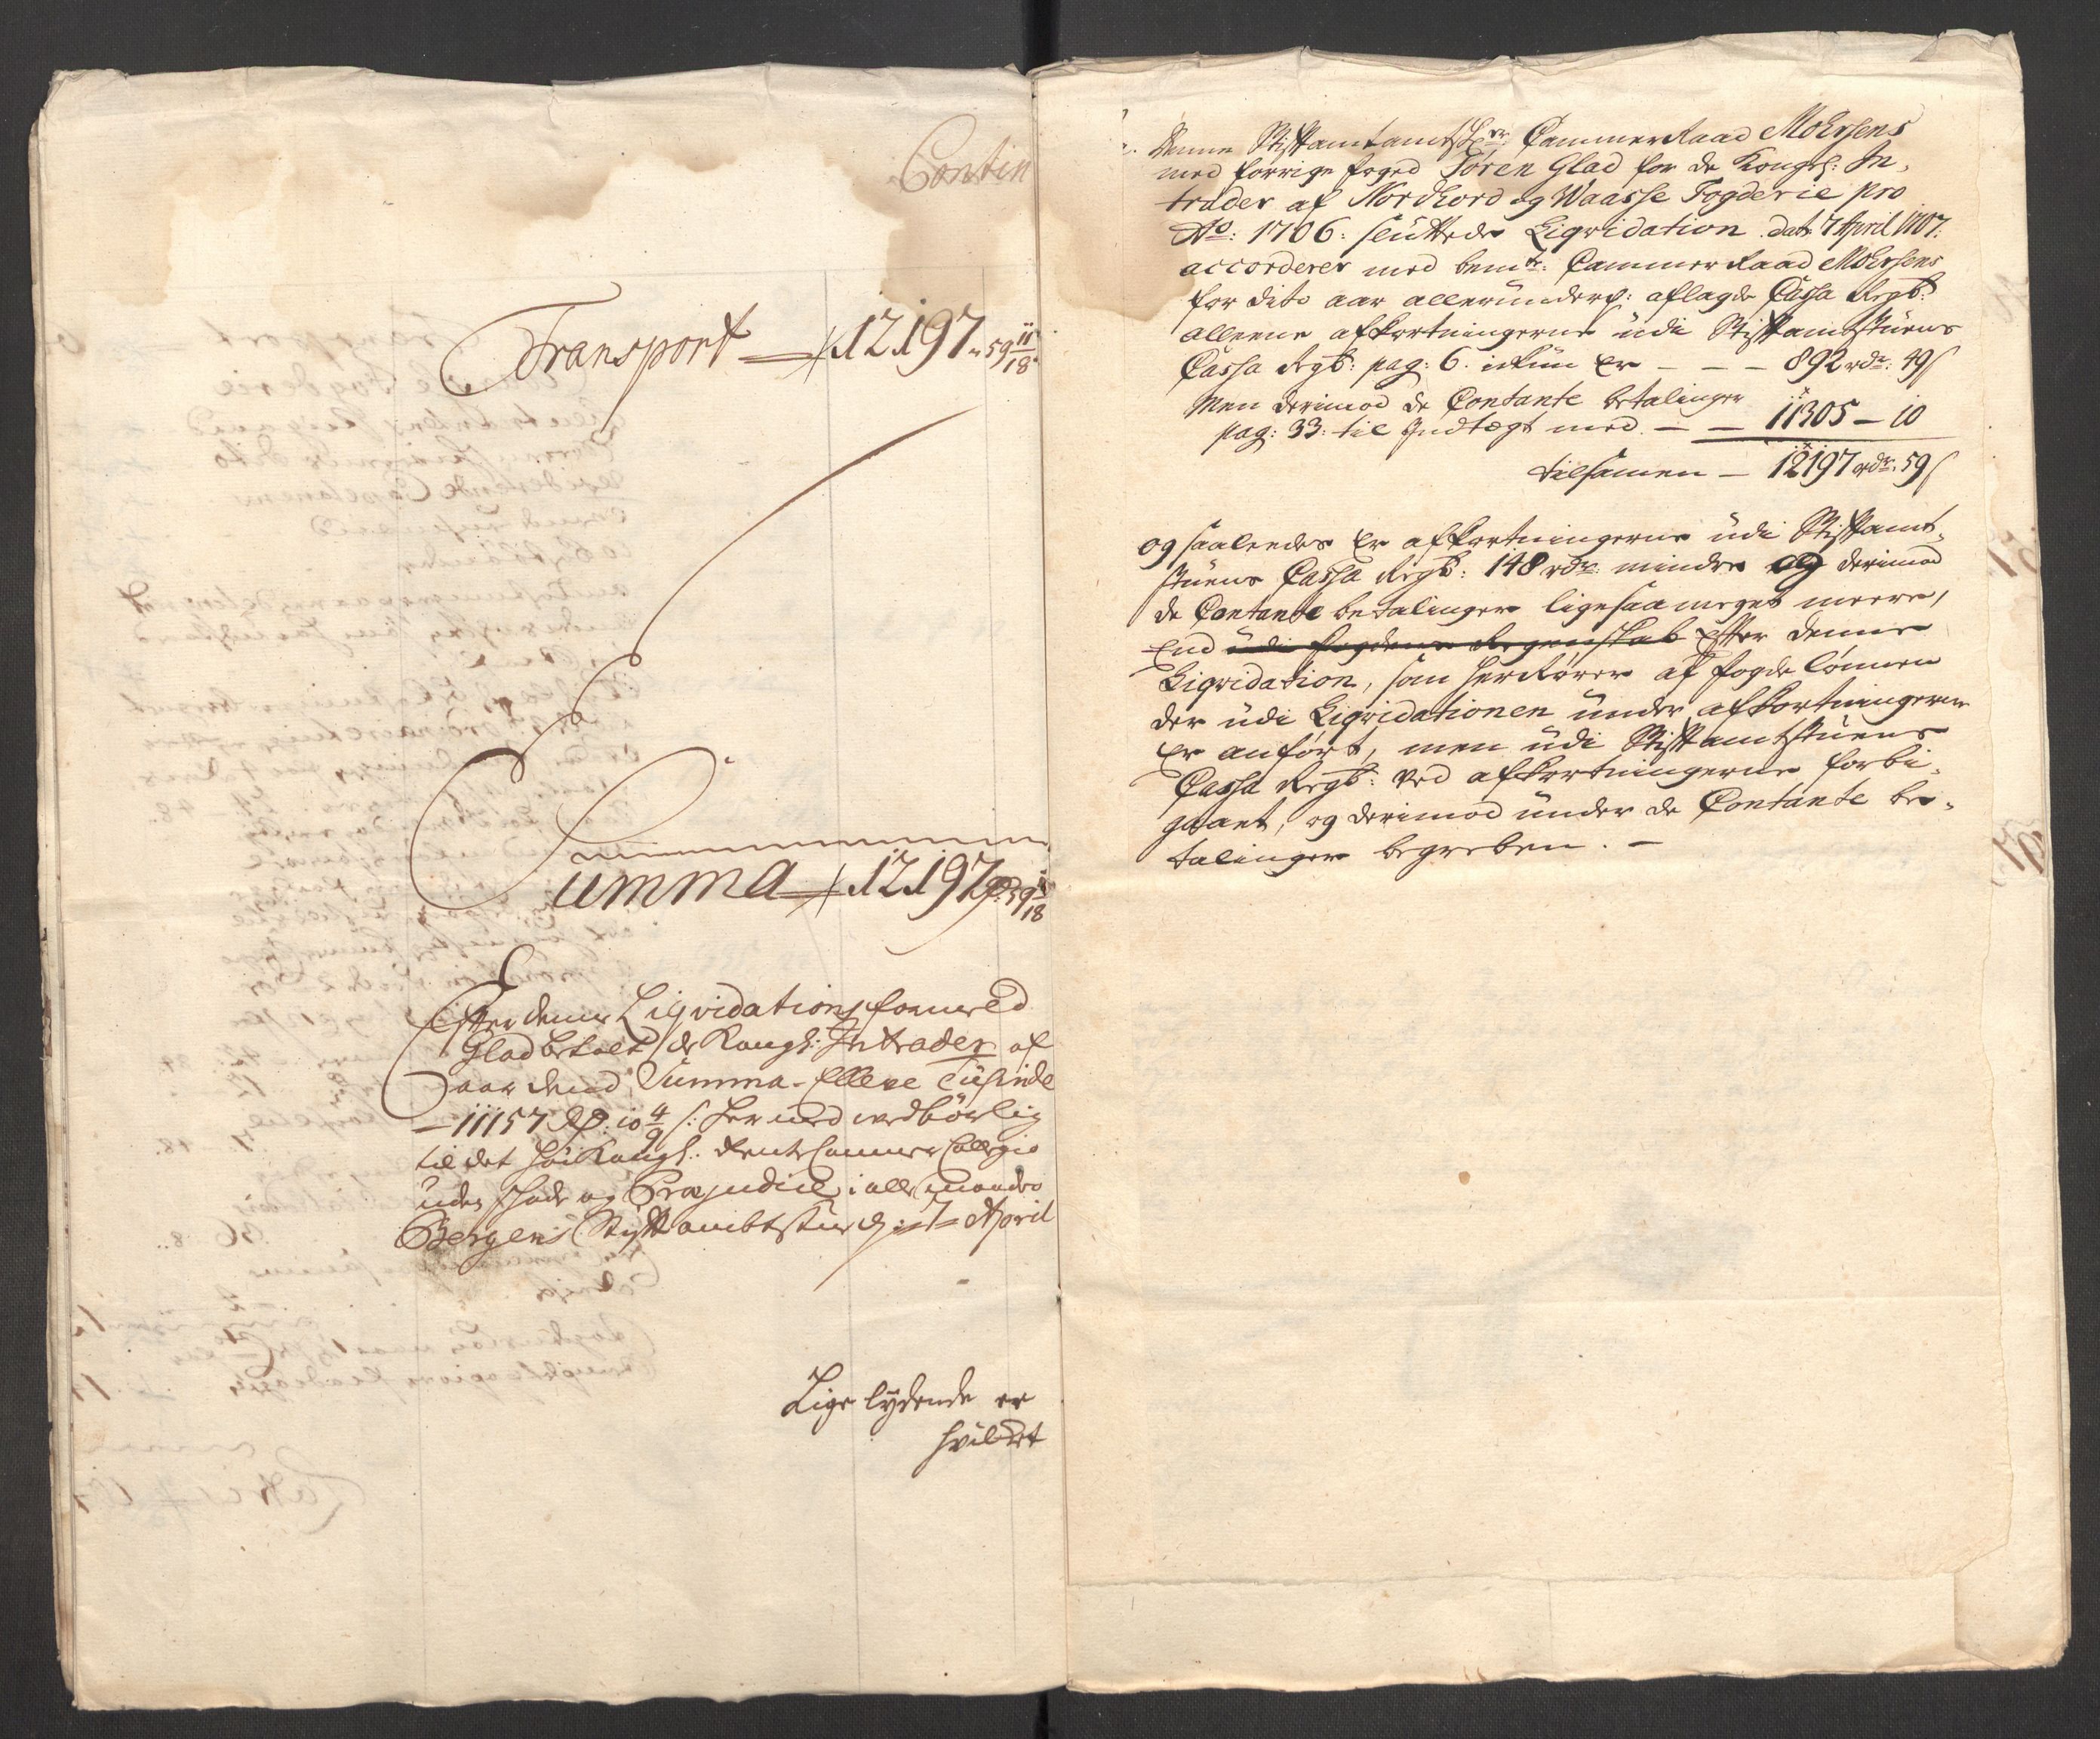 Contin
Transport — 12197 „ 59 11/18
Summa — 12197 Rd 59 11/18
Efter denne Liqvidation, formed
Glad betalt de Kongl: Intrader af
aar dend Summa - Elleve Tüsinde
— 11157 Rd: 10 4/9 s: her med
til det høi Kongl: Rente Cammer Collegio
uden schade og Præjudice i alle maader
Bergens Stiftambtstue d: 7 April
Lige lydende er
hvilket
Denne Stiftamtamtschr: Cammer Raad Moersens
med forrige foged Søren Glad for de Kongel: In-
trader af Nordhord og Waasse Fogderie pro
Ao: 1706: slüttede Liqvidation dat: 7 April 1707:
accorderer med bemte: Cammer Raad Moersens
for dito aar alleründerd: aflagde Cassa Regb:
alleene afkortningerne üdi Stiftamtstüens
Cassa Regb: pag: 6. ickun er — — — 892 rdr: 49 s
Men derimod de Contante betalinger
pag: 33: til Indtægt med — — 11305 — 10
tilsamen — 12197 rdr: 59 s
og saaledes er afkortningerne üdi Stiftamt-
stüens Cassa Regb: 148 rdr: mindre og derimod
de Contante betalinger ligesaa meget meere,
End üdi fogdens Regenskab efter denne
Liqvidation, som herrører af fogde lönnen
der üdi Liqvidationen under afkortningerne
er anfört, men üdi Stiftamtstüens
Cassa Regb: ved afkortningerne forbi-
gaaet, og derimod ünder de Contante be-
talinger begreben. —